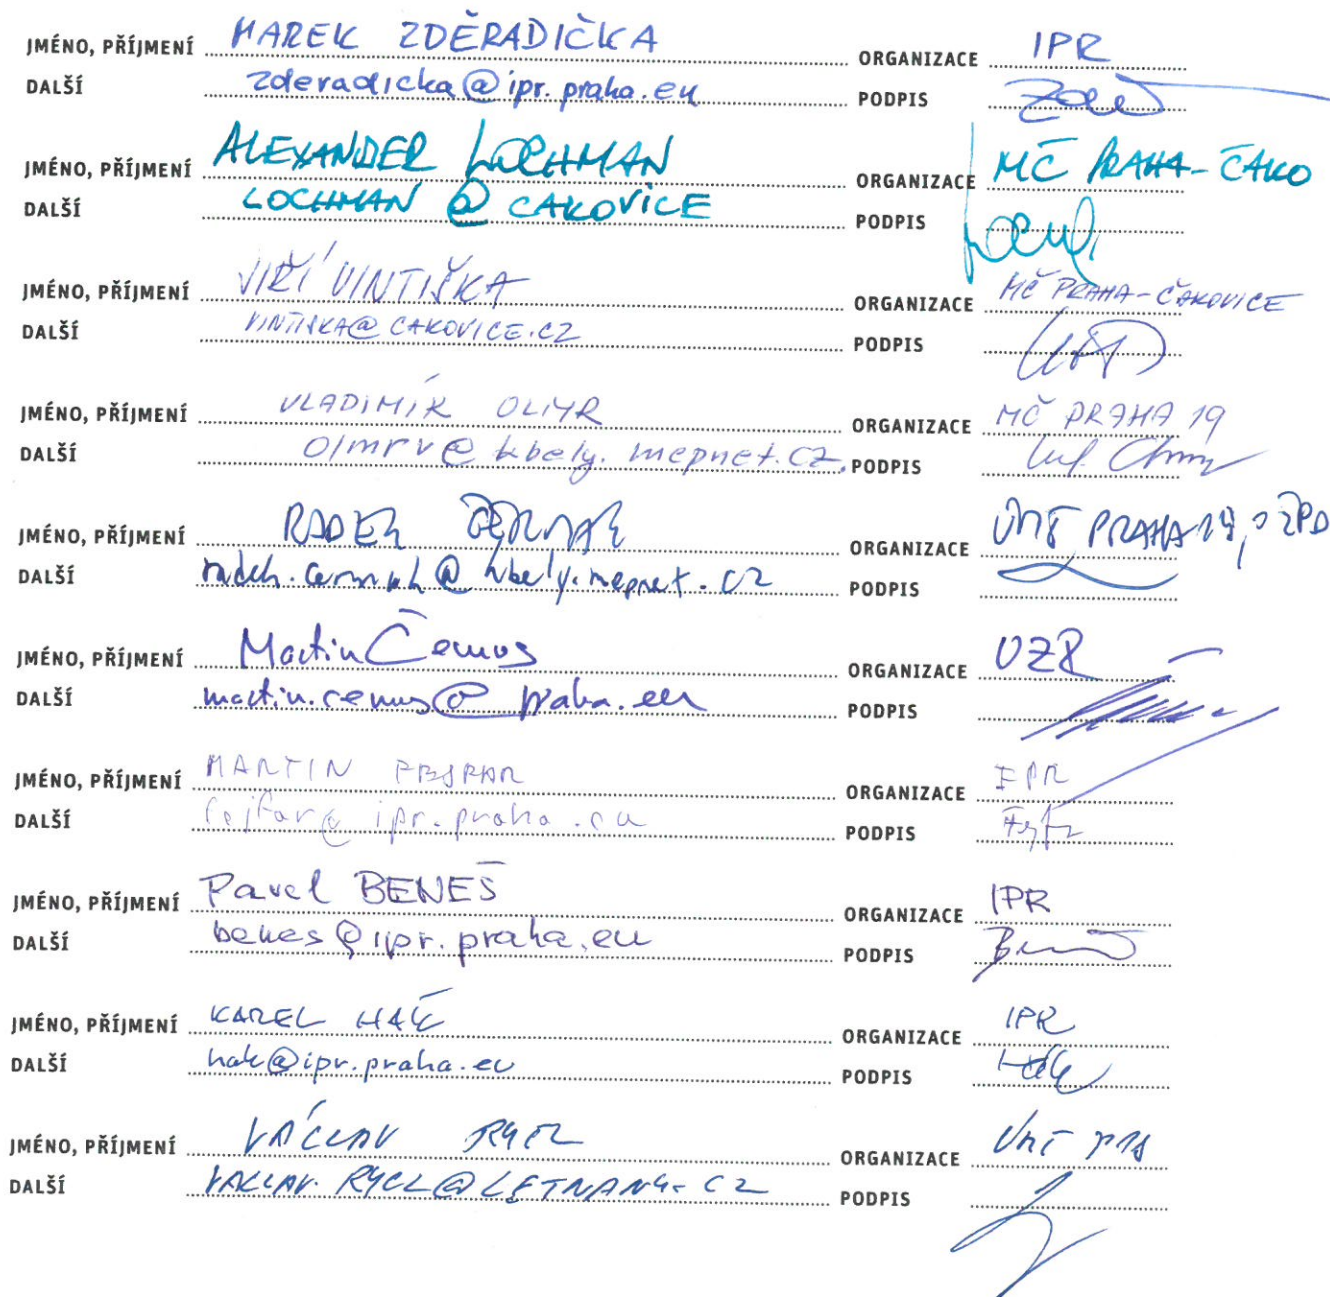 JMÉNO, PŘÍJMENÍ MAREK ZDĚRADIČKA ORGANIZACE IPR
DALŠÍ zderadicka@ipr.praha.eu PODPIS
JMÉNO, PŘÍJMENÍ ALEXANDER LOCHMAN ORGANIZACE MČ PRAHA-ČAKO
DALŠÍ LOCHMAN @ CAKOVICE PODPIS
JMÉNO, PŘÍJMENÍ JIŘÍ VINTIŠKA ORGANIZACE MČ PRAHA-ČAKOVICE
DALŠÍ VINTISKA@CAKOVICE.CZ PODPIS
JMÉNO, PŘÍJMENÍ VLADIMÍR OLMR ORGANIZACE MČ PRAHA 19
DALŠÍ olmrv@kbely.mepnet.cz PODPIS
JMÉNO, PŘÍJMENÍ RADEK ČERMÁK ORGANIZACE ÚMČ PRAHA 19,
DALŠÍ radek.cermak@kbely.mepnet.cz PODPIS
JMÉNO, PŘÍJMENÍ Martin Čemus ORGANIZACE UZR
DALŠÍ martin.cemus@praha.eu PODPIS
JMÉNO, PŘÍJMENÍ MARTIN ORGANIZACE IPR
DALŠÍ PODPIS
JMÉNO, PŘÍJMENÍ Pavel BENEŠ ORGANIZACE IPR
DALŠÍ benes@ipr.praha.eu PODPIS
JMÉNO, PŘÍJMENÍ KAREL HÁK ORGANIZACE IPR
DALŠÍ hak@ipr.praha.eu PODPIS Hák
JMÉNO, PŘÍJMENÍ VÁCLAV RYCL ORGANIZACE
DALŠÍ VACLAV.RYCL@LETNANY.CZ PODPIS